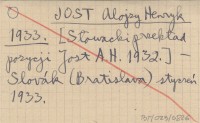 JOST Alojzy Henryk
1933. [Słowacki przekład
pozycji Jost A.H. 1932.] –
Slovák (Bratislava) styczeń
1933.